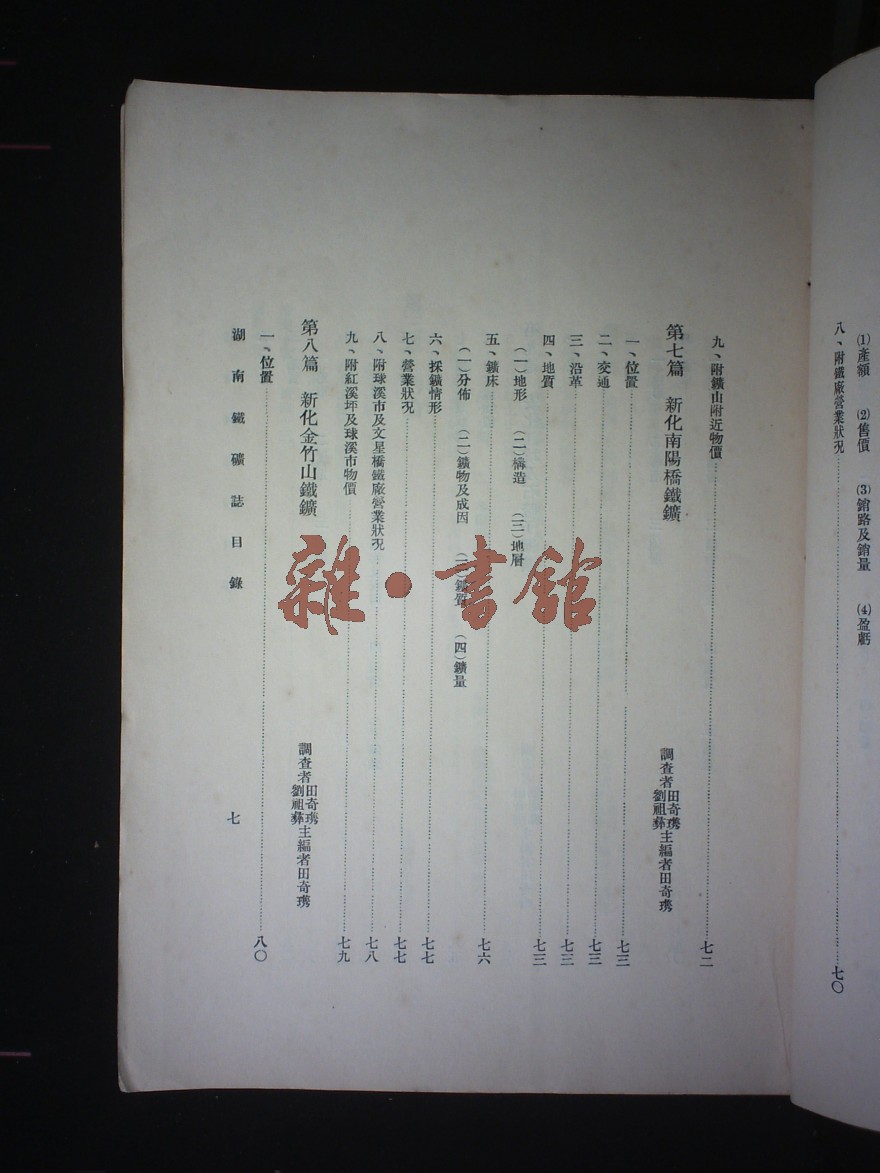 (1)產額　(2)售價　(3)銷路及銷量　(4)盈虧
八、附鐵廠營業狀况……七〇
九、附鑛山附近物價……七二
第七篇　新化南陽橋鐵鑛　調查者田奇㻪劉祖彝主編者田奇㻪
一、位置……七三
二、交通……七三
三、沿革……七三
四、地質……七三
(一)地形　(二)構造　(三)地層
五、鑛床……七六
(一)分佈　(二)鑛物及成因　(三)鑛質　(四)鑛量
六、採鑛情形……七七
七、營業狀况……七七
八、附球溪市及文星橋鐵廠營業狀况……七八
九、附紅溪坪及球溪市物價……七九
第八篇　新化金竹山鐵鑛　調查者田奇㻪劉祖彝主編者田奇㻪
一、位置……八〇
湖南鐵礦誌目錄　七
雜·書館